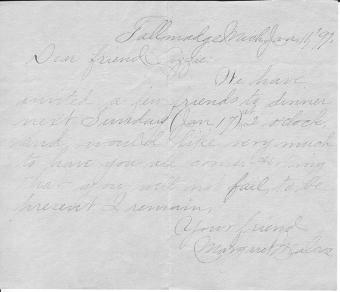 Tallmadge Mich Jan 11 '97.
Dear friend
We have
invited a few friends to dinner
next Sunday (Jan 17) 2 oclock
and would like very much
to have you all come
that you will not fail to be
present I remain,
Your friend
Margaret